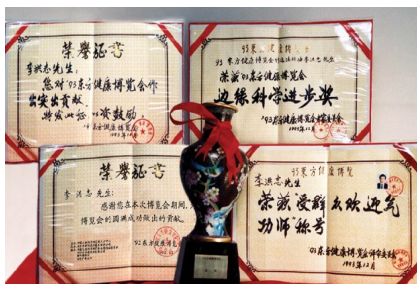 荣誉证书
李洪志先生:
您对'93东方健康博览会作
出突出贡献,
特发此证 以资鼓励
'93东方健康博览会
1993年12月
93东方健康博览会
李洪志先生
荣获'93东方健康博览会
边缘科学进步奖
1993年12月
荣誉证书
李洪志 先生:
感谢您在本次博览会期间,为
博览会的圆满成功做出的贡献。
'93东方健康博览会
93东方健康博览
李洪志先生
荣获受群众欢迎气
功师称号
'93东方健康博览会评审委员会
1993年12月